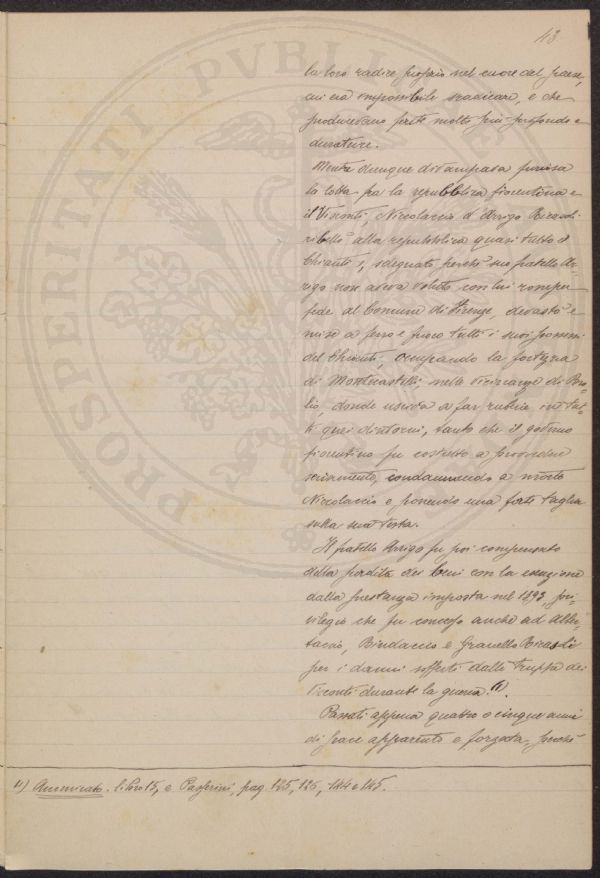 43
la loro radice proprio nel cuore del paese,
cui era impossibile sradicare, e che
producevano ferite molto più profonde e
durature.
Mentre dunque divampava furiosa
la lotta fra la repubblica fiorentina e
il Visconti, Niccolaccio d'Arrigo Ricasoli
ribellò alla repubblica quasi tutto il
Chianti e, sdegnato perchè suo fratello Ar-
rigo non aveva voluto con lui romper
fede al Comune di Firenze, devastò e
mise a ferro e fuoco tutti i suoi possessi
del Chianti, occupando la fortezza
di Montecastelli nelle vicinanze di Bro-
lio, donde usciva a far ruberie in tut-
ti quei dintorni, tanto che il governo
fiorentino fu costretto a provvedere
seriamente, condannando a morte
Niccolaccio e ponendo una forte taglia
sulla sua testa.
Il fratello Arrigo fu poi compensato
della perdita dei beni con la esenzione
dalla prestanza imposta nel 1893, pri-
vilegio che fu concesso anche ad Alber-
taccio, Bindaccio e Granello Ricasoli
per i danni sofferti dalle truppe dei
Visconti durante la guerra. (1).
Passati appena quattro o cinque anni
di pace apparente e forzata, perchè
1) Ammirato. libro 15, e Passerini, pag. 125, 126, 144 e 145.
PROSPERITATI PVBLIC